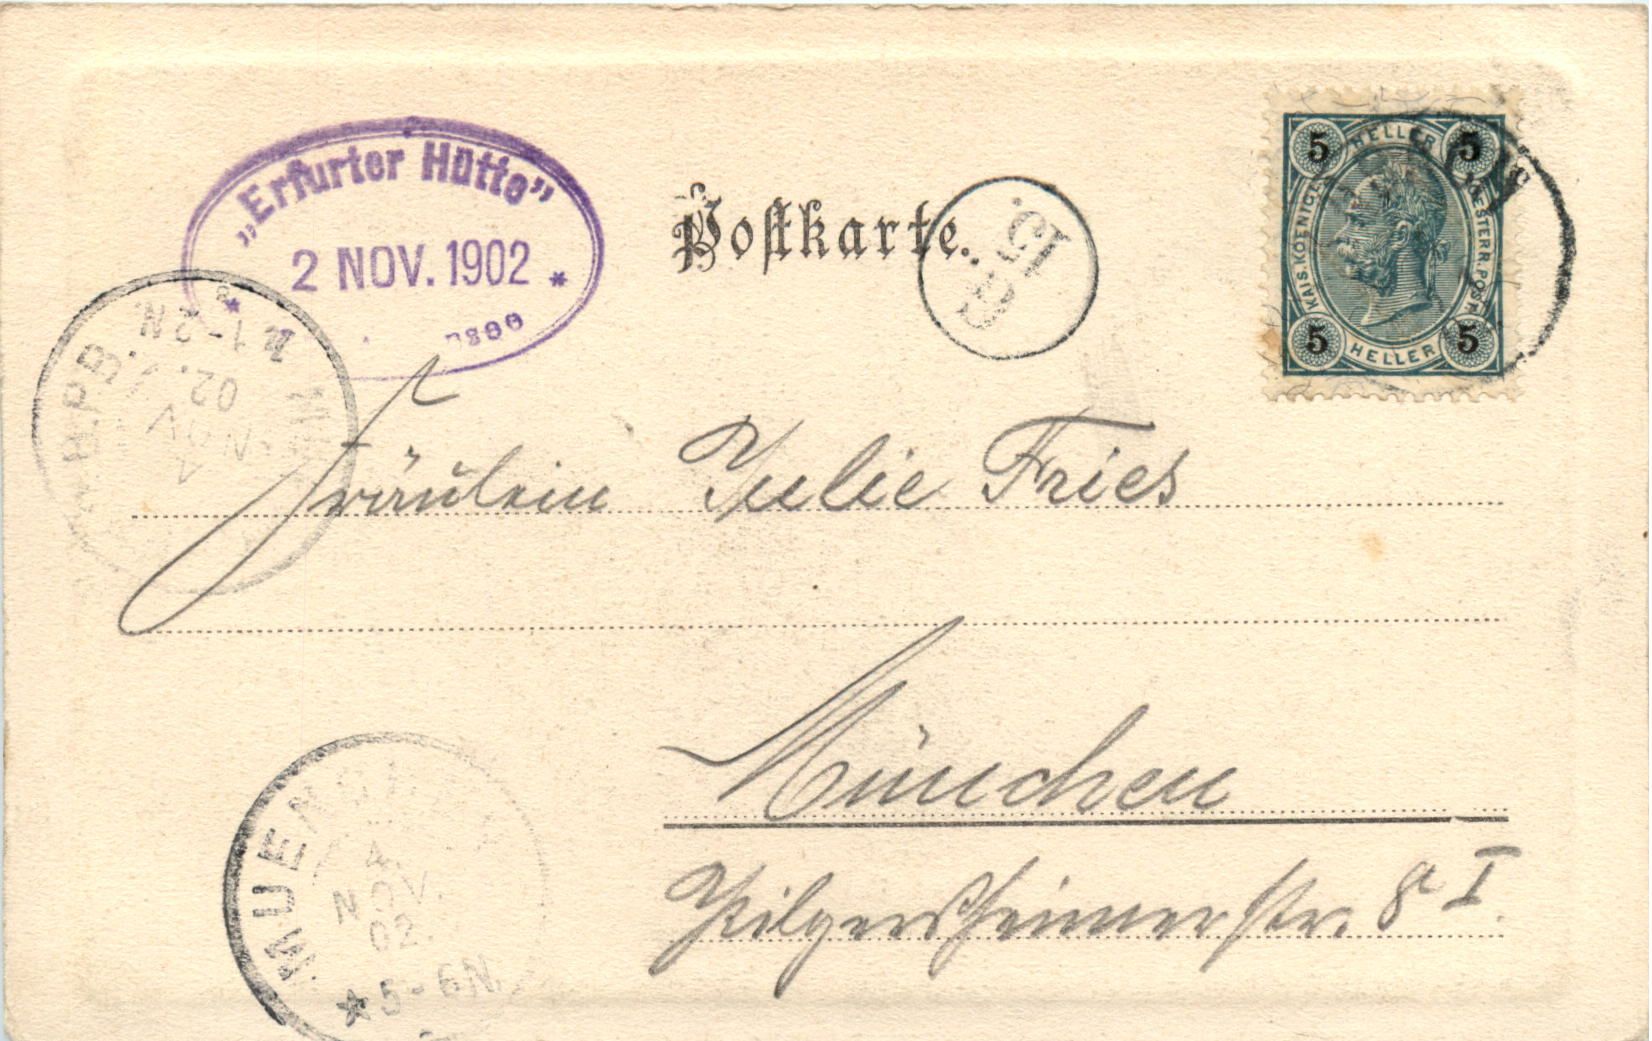 „Erfurter Hütte”
* 2 NOV. 1902 *
Postkarte.
5 HELLER 5
KAIS. KOENIGL. OESTERR. POST
5 HELLER 5
1-2N.
B.P.B.
02.
NOV
4
Fräulein Julie Fries
München
Pilgersheimerstr. 8 I.
MUENCHEN
4.
NOV.
02.
* 5-6N.